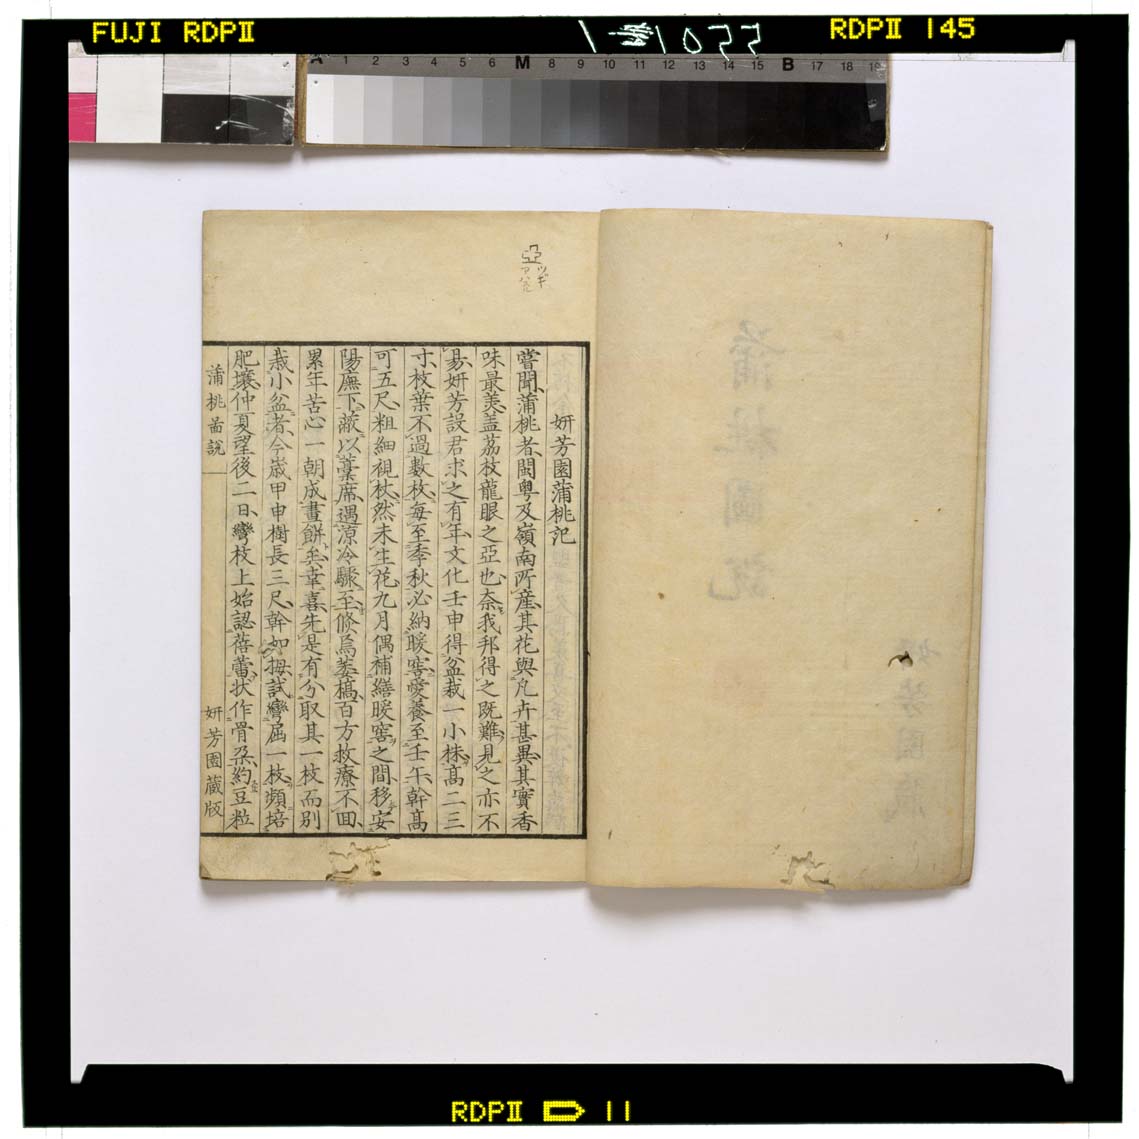 FUJI RDPⅡ
RDPⅡ 145
A 1 2 3 4 5 6 M 8 9 10 11 12 13 14 15 B 17 18 19
亞
ツギ
妍芳園蒲桃記
嘗聞蒲桃者閩粵及嶺南所產其花與凡卉甚異其實香
味最美盖茘枝龍眼之亞也奈我邦得之既難見之亦不
易妍芳設君求之有年文化壬申得盆栽一小株高二三
寸枝葉不過數枚每至季秋必納暖窖愛養至壬午幹高
可五尺粗細視杖然未生花九月偶補繕暖窖之間移安
陽廡下蔽以藁席遇凉冷驟至倏焉萎槁百方救療不回
累年苦心一朝成畫餅矣幸喜先是有分取其一枝而別
栽小盆者今歲甲申樹長三尺幹如拇試彎屈一枝頻培
肥壤仲夏望後二日彎枝上始認蓓蕾狀作骨朶約豆粒
蒲桃啚說
妍芳園藏版
蒲桃圖說
RDPⅡ 11